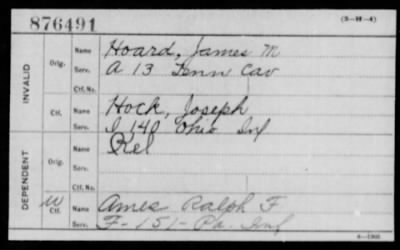 876491
(3-H-4)
INVALID
Orig.
Name Hoard, James M
Serv. A 13 Tenn Cav
Ctf. No.
Ctf.
Name Hock, Joseph
Serv. I 140 Ohio Inf
DEPENDENT
Orig.
Name Rel
Serv.
Ctf. No.
W Ctf.
Name Ames Ralph F
Serv. F-151-Pa. Inf